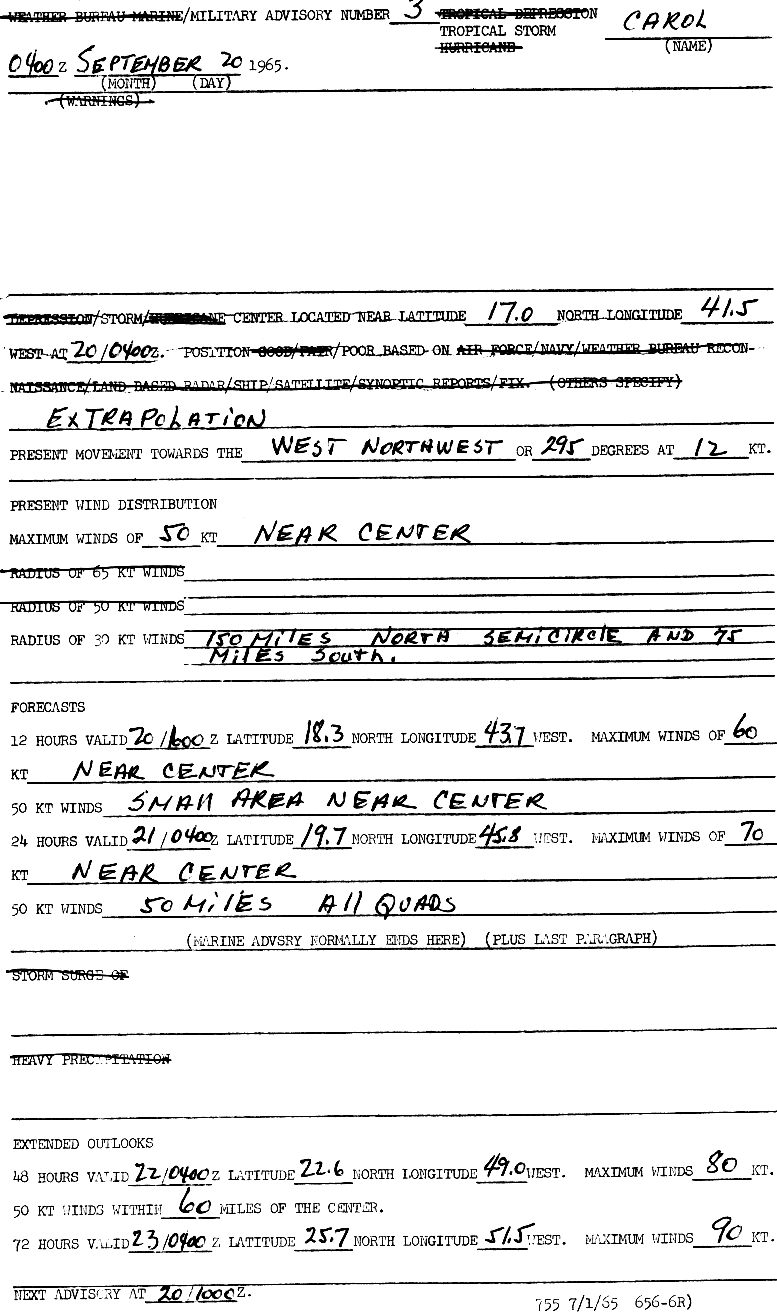 WEATHER BUREAU MARINE/MILITARY ADVISORY NUMBER 3 TROPICAL DEPRESSION CAROL
TROPICAL STORM
HURRICANE (NAME)
0400 Z SEPTEMBER 20 1965.
(MONTH) (DAY)
(WARNINGS)
DEPRESSION/STORM/HURRICANE CENTER LOCATED NEAR LATITUDE 17.0 NORTH LONGITUDE 41.5
WEST AT 20/0400Z. POSITION GOOD/FAIR/POOR BASED ON AIR FORCE/NAVY/WEATHER BUREAU RECON-
NAISSANCE/LAND BASED RADAR/SHIP/SATELLITE/SYNOPTIC REPORTS/FIX. (OTHERS SPECIFY)
EXTRAPOLATION
PRESENT MOVEMENT TOWARDS THE WEST NORTHWEST OR 295 DEGREES AT 12 KT.
PRESENT WIND DISTRIBUTION
MAXIMUM WINDS OF 50 KT NEAR CENTER
RADIUS OF 65 KT WINDS
RADIUS OF 50 KT WINDS
RADIUS OF 30 KT WINDS 150 MILES NORTH SEMICIRCLE AND 75
MILES South.
FORECASTS
12 HOURS VALID 20/1600 Z LATITUDE 18.3 NORTH LONGITUDE 43.7 WEST. MAXIMUM WINDS OF 60
KT NEAR CENTER
50 KT WINDS SMALL AREA NEAR CENTER
24 HOURS VALID 21/0400Z LATITUDE 19.7 NORTH LONGITUDE 45.8 WEST. MAXIMUM WINDS OF 70
KT NEAR CENTER
50 KT WINDS 50 MILES All QUADS
(MARINE ADVSRY NORMALLY ENDS HERE) (PLUS LAST PARAGRAPH)
STORM SURGE OF
HEAVY PRECIPITATION
EXTENDED OUTLOOKS
48 HOURS VALID 22/0400 Z LATITUDE 22.6 NORTH LONGITUDE 49.0 WEST. MAXIMUM WINDS 80 KT.
50 KT WINDS WITHIN 60 MILES OF THE CENTER.
72 HOURS VALID 23/0400 Z LATITUDE 25.7 NORTH LONGITUDE 51.5 WEST. MAXIMUM WINDS 90 KT.
NEXT ADVISORY AT 20/1000Z.
755 7/1/65 656-6R)